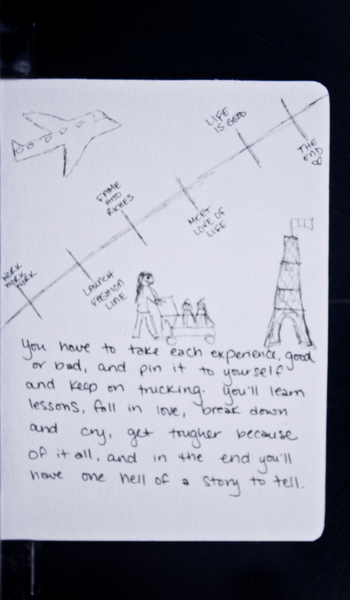 LIFE
IS GOOD
THE
END
FAME
AND
RICHES
MEET
LOVE OF
LIFE
WORK
WORK
WORK
LAUNCH
FASHION
LINE
You have to take each experience, good
or bad, and pin it to yourself
and keep on trucking. You'll learn
lessons, fall in love, break down
and cry, get tougher because
of it all, and in the end you'll
have one hell of a story to tell.